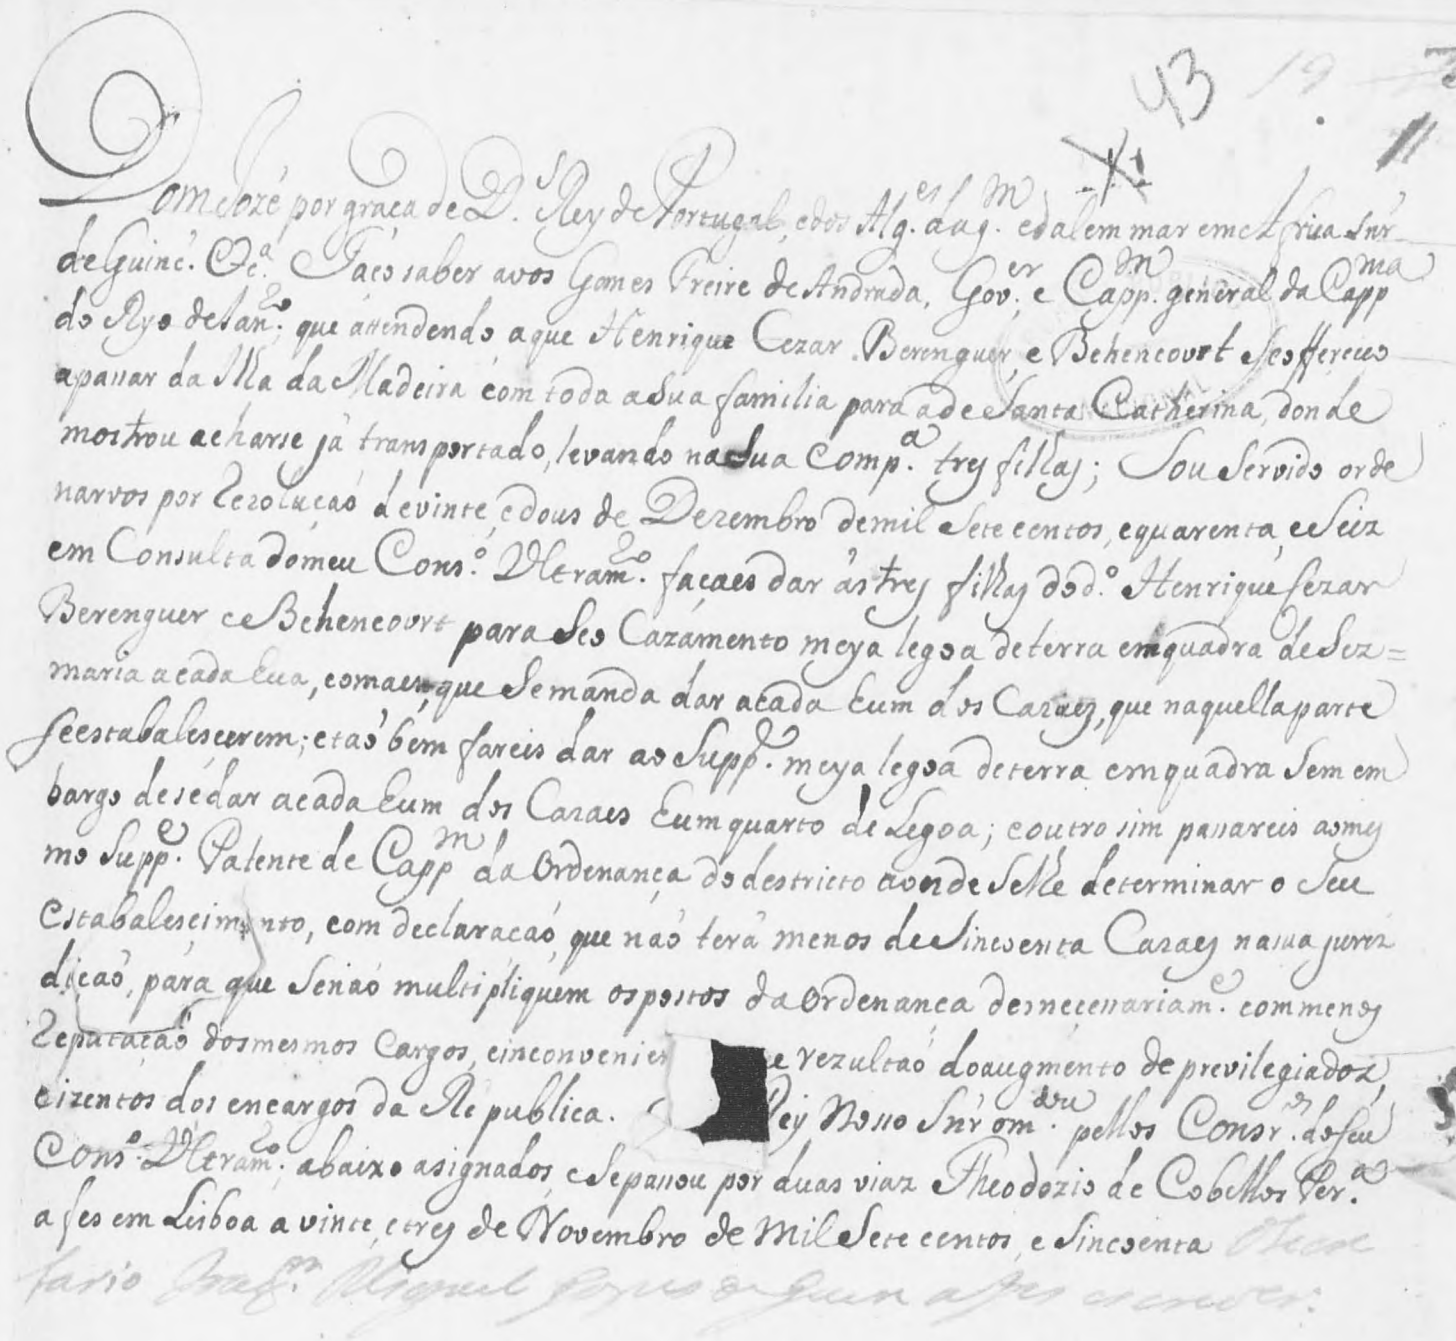 43
19
XI
Dom Jozé por graça de D.s Rey de Portugal, edos Alg.es daq.m edalem mar em Africa Snr
de Guiné. &c.a Faço saber avos Gomes Freire de Andrada, Gov.er e Capp.m general da Capp.ma
do Ryo de Jan.ro que attendendo aque Henrique Cezar Berenguer, e Behencourt Seoffereceo
apassar da Ilha da Madeira com toda asua familia para ade Santa Catherina, donde
mostrou acharse já transportado, levando nasua comp.a tres filhas; Sou servido orde
narvos por Rezolução devinte, edous de Dezembro demil Sete centos, equarenta, eSeiz
em Consulta domeu Cons.o Ultram.ro façaes dar ás tres filhas dod.o Henrique Cezar
Berenguer eeBehencourt para Seo Cazamento meya legoa deterra emquadra deSez=
maria acada hua, comaes que Semanda dar acada hum dos Cazaes, que naquella parte
seestabalescerem; etaõ bem fareis dar ao Supp.e meya legoa deterra emquadra Sem em
bargo desedar acada hum dos Cazaes hum quarto de Legoa; eoutro sim passareis aomes
mo Supp.e Patente de Capp.m da Ordenança dodestricto aonde Selhe determinar o Seu
estabalescimento, com declaraçaõ que naõ terá menos deSincoenta Cazaes nasua juriz
diçaõ, para que Senaõ multipliquem ospostos da Ordenança desnecessariam.e commenos
Reputaçaõ dosmesmos Cargos, einconvenien e rezultaõ doaugmento de previlegiados,
eizentos dos encargos da Republica. Rey Nosso Snr om.dou pellos Consr.os doseu
Cons.o Ultram.ro abaixo asignados, eSepassou por duas viaz Theodozio de Cobellos Per.a
a fes em Lisboa a vinte, etres de Novembro de Mil Sete centos, e Sincoenta O Secre
tario Joaq.m Miguel Lopes de a fes escrever.